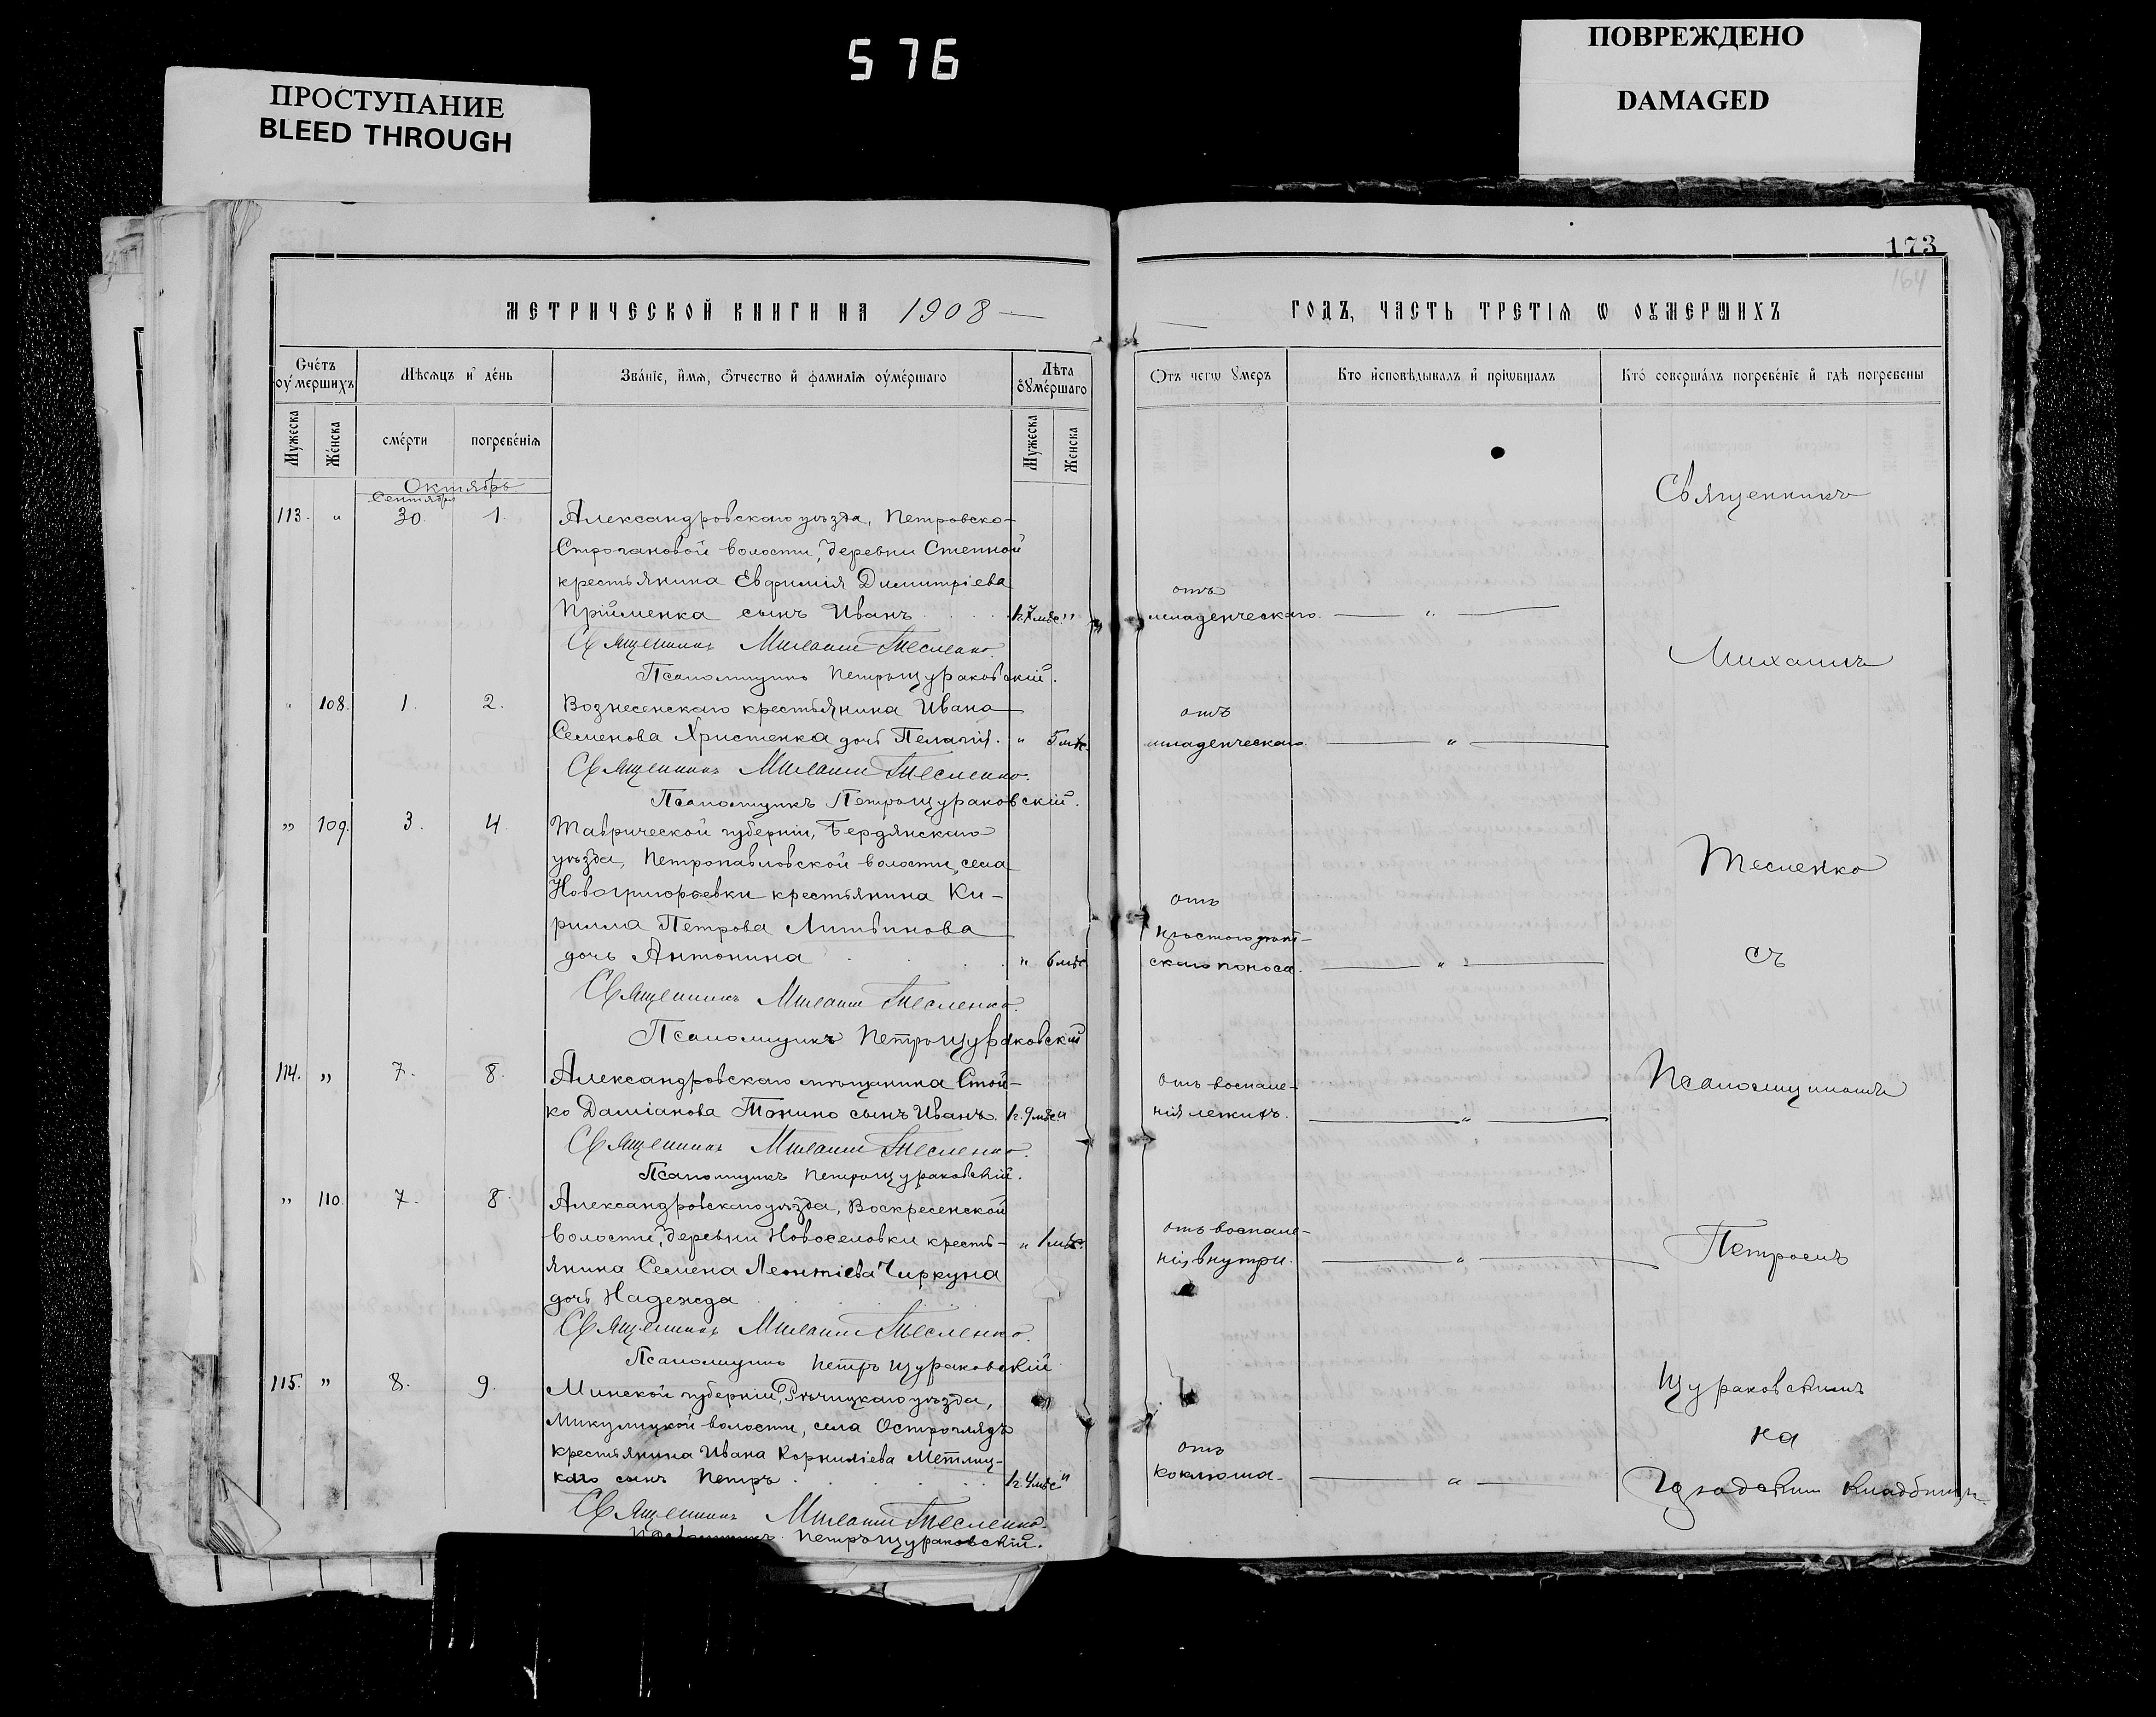 576
ПРОСТУПАНИЕ
BLEED THROUGH
ПОВРЕЖДЕНО
DAMAGED
173
164
МЕТРИЧЕСКОЙ КНИГИ НА 1908
ГОДЪ, ЧАСТЬ ТРЕТІѦ Ѡ ОУМЕРШИХЪ
Счетъ оумершихъ
Мѣсяцъ и день
Званіе, имя, отчество и фамилія оумершаго
Лѣта оумершаго
Отъ чегѡ умеръ
Кто исповѣдывалъ и пріѡбщалъ
Кто совершалъ погребеніе и гдѣ погребены
Мужеска
Женска
смерти
погребенія
Мужеска
Женска
Октябрь
Сентября
113. " 30. 1.
Александровскаго уѣзда, Петровско-
Строгановой волости, деревни Степной
крестьянина Евфимія Димитріева
Прійменка сынъ Иванъ 1г.7мѣс. "
отъ
младенческаго.
Священникъ Михаилъ Тесленко.
Псаломщикъ Петръ Щураковскій.
" 108. 1. 2.
Вознесенскаго крестьянина Ивана
Семенова Христенка дочь Пелагія. " 5мѣс.
отъ
младенческаго.
Священникъ Михаилъ Тесленко.
Псаломщикъ Петръ Щураковскій.
" 109. 3. 4.
Таврической губерніи, Бердянскаго
уѣзда, Петропавловской волости, села
Новогригорьевки крестьянина Ки-
рилла Петрова Литвинова
дочь Антонина " 6мѣс.
отъ
простого дѣт-
скаго поноса.
Священникъ Михаилъ Тесленко.
Псаломщикъ Петръ Щураковскій
114. " 7. 8.
Александровскаго мѣщанина Стой-
ко Даміанова Тонино сынъ Иванъ. 1г.9мѣс. "
отъ воспале-
нія легкихъ.
Священникъ Михаилъ Тесленко.
Псаломщикъ Петръ Щураковскій.
" 110. 7. 8.
Александровскаго уѣзда, Воскресенской
волости, деревни Новоселовки кресть- " 1мѣс.
янина Семена Леонтіева Чиркуна
дочь Надежда
отъ воспале-
нія внутри.
Священникъ Михаилъ Тесленко.
Псаломщикъ Петръ Щураковскій
115. " 8. 9.
Минской губерніи, Рѣчицкаго уѣзда,
Микулицкой волости, села Острогляды
крестьянина Ивана Корниліева Метлиц-
каго сынъ Петръ 1г.4мѣс. "
отъ
коклюша.
Священникъ Михаилъ Тесленко.
Псаломщикъ Петръ Щураковскій.
Священникъ
Михаилъ
Тесленко
съ
Псаломщикомъ
Петромъ
Щураковскимъ
на
Городскомъ кладбищѣ.